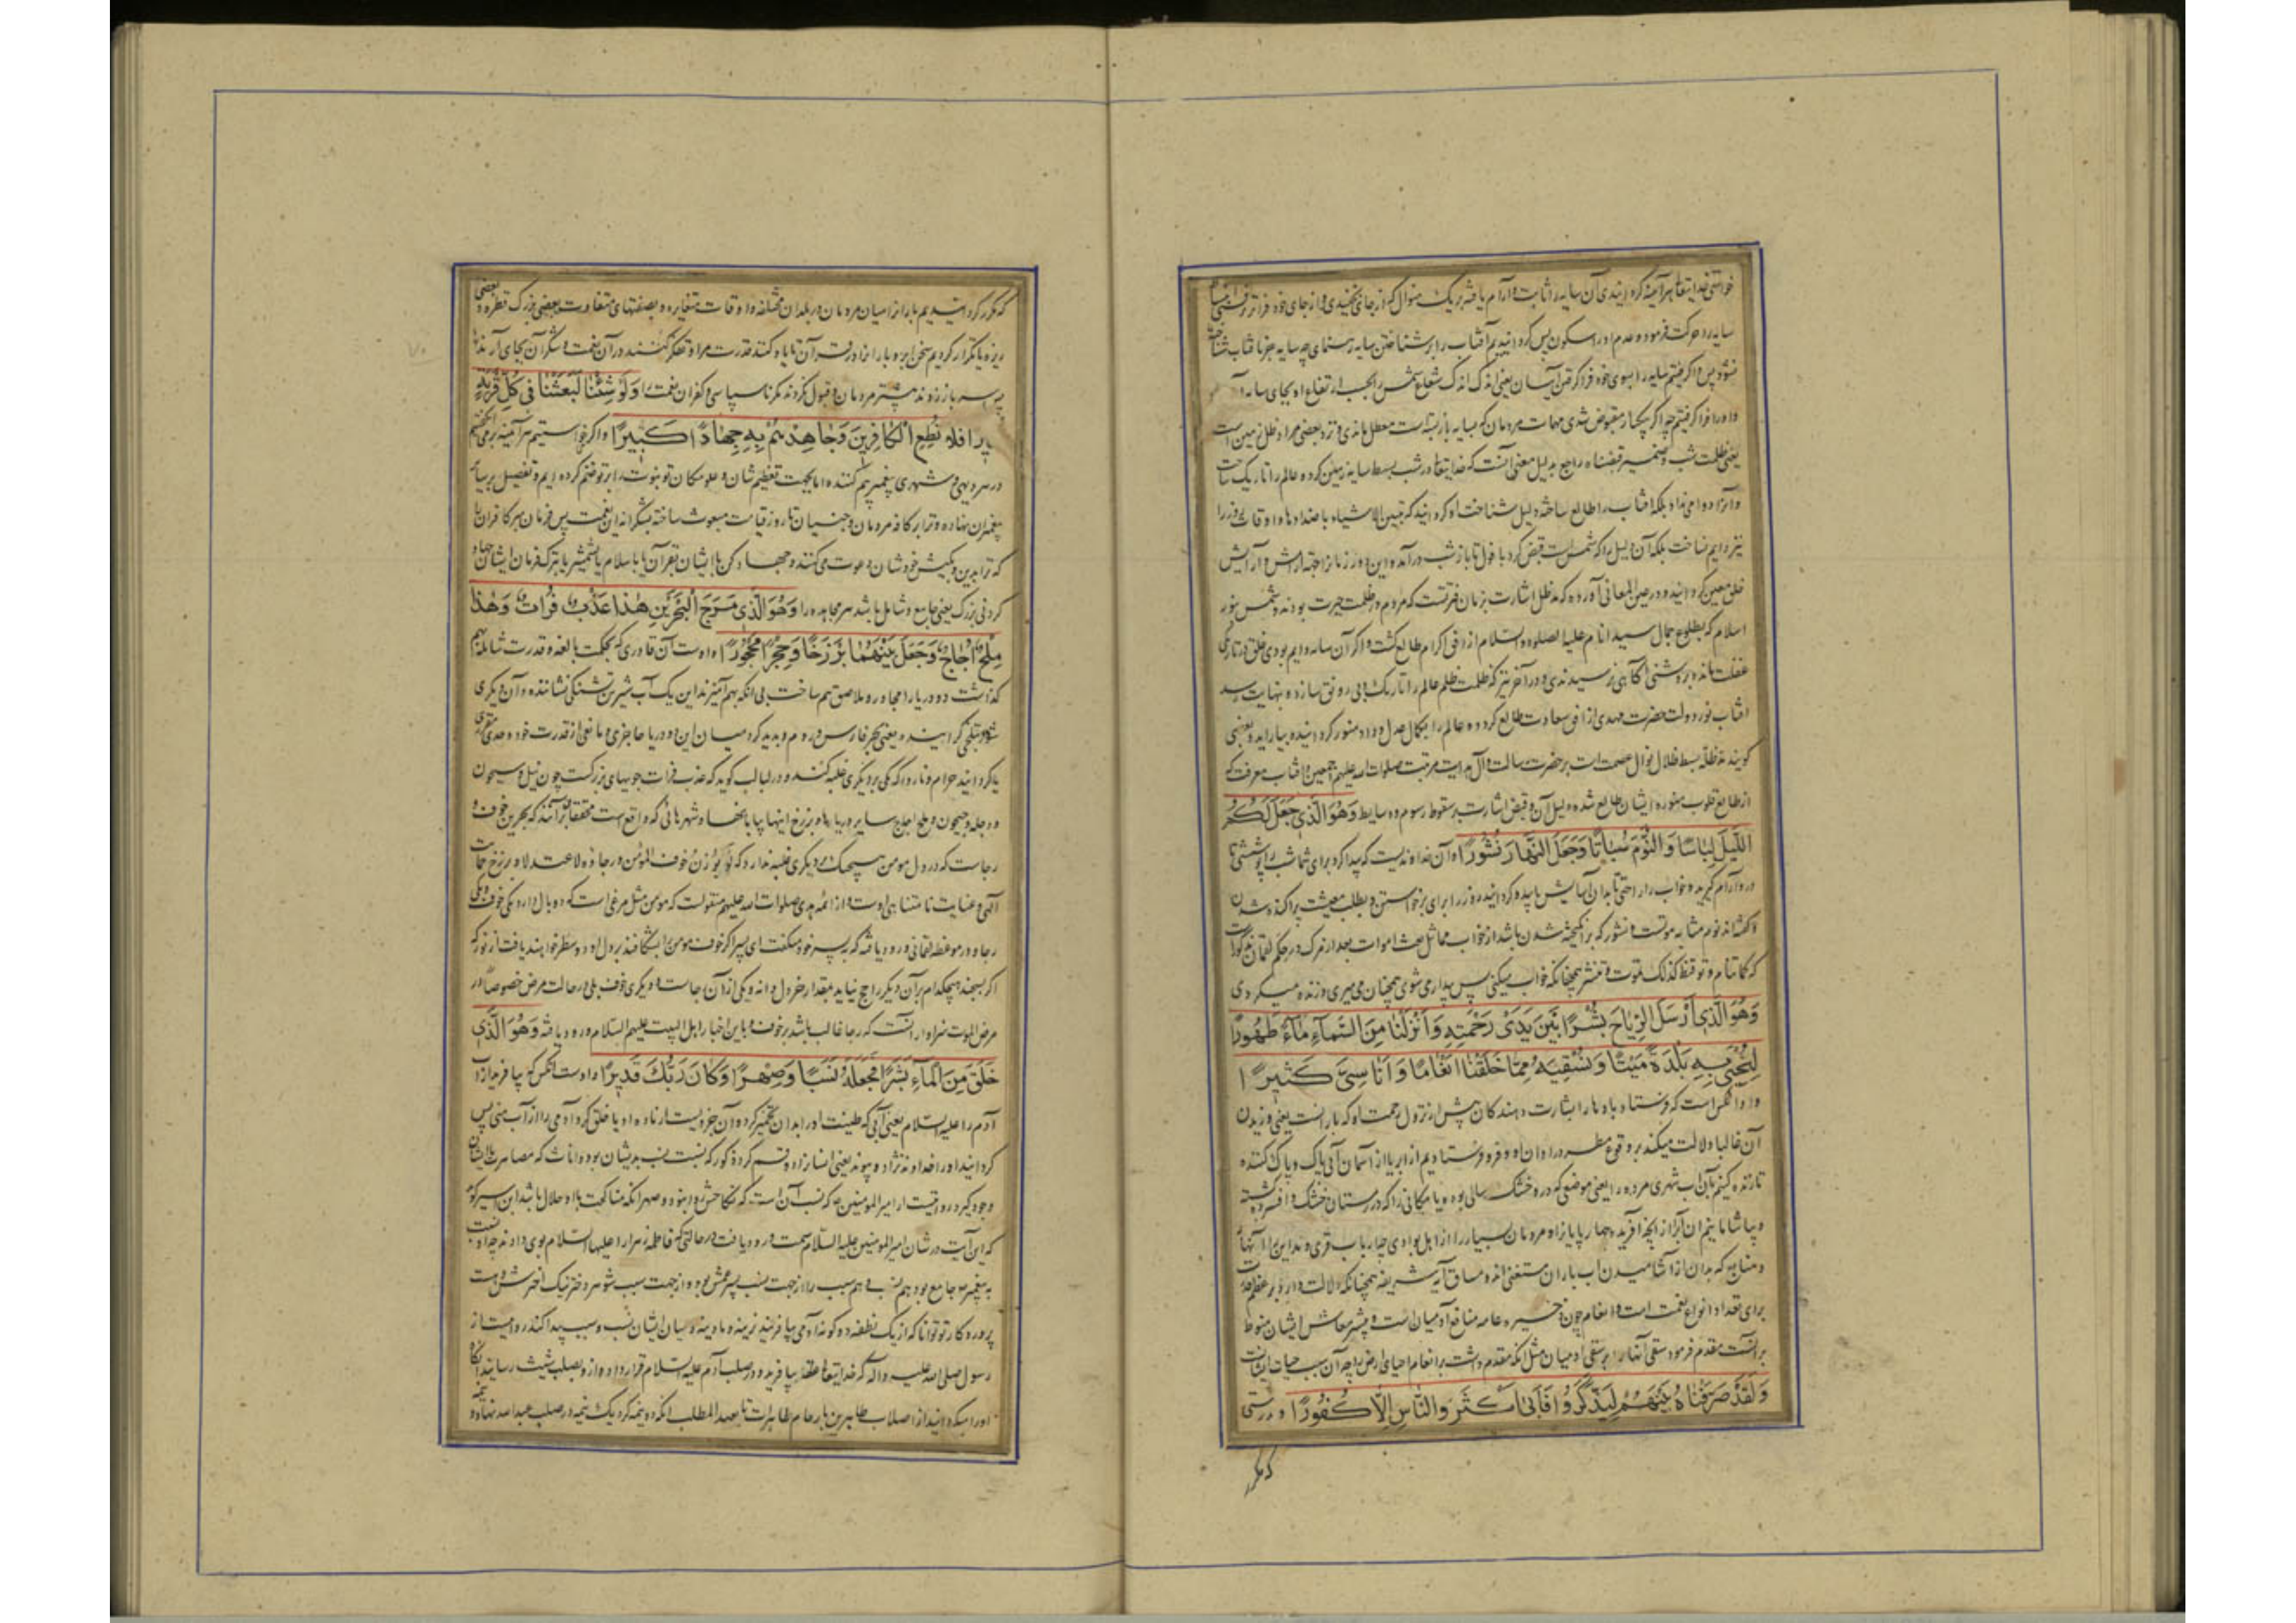 خواستی خدایتعالی هرآینه کردانیدی آن سایه را ثابت و آرام یافته بر یک منوال که از جای نجنبیدی و از جای خود فراتر نرفتی
سایه را حرکت فرمود و عدم او را سکون پس کردانیدیم آفتاب را بر شناختن سایه رهنمای چه سایه جز بآفتاب شناخته
نشود پس فراکرفتیم سایه را بسوی خود فراکرفتن آسان یعنی اندک اندک شعاع شمس را بحسب ارتفاع او بجای سایه
و او را فراکرفتیم چه اکر یکبار مقبوض شدی مهمات مردمان که بسایه بازبسته است معطل ماندی و نزد بعضی مراد از ظل زمین است
یعنی ظلمت شب و ضمیر قبضناه راجع بدلیل معنی آنست که خدایتعالی در شب بسط سایه زمین کرده عالم را تاریک ساخت
و آنرا دوامی نداد بلکه آفتاب را طالع ساخته دلیل شناخت او کردانید که تتبین الاشیاء باضدادها و اوقات روز را
نیز دایم نساخت بلکه آن دلیل را که شمس است قبض کرد بافول تا باز شب درآمد و این دو زمان از جهة آرامش و آرایش
خلق معین کردانید و در عین المعانی آورده که مد ظل اشارت بزمان فترتست که مردم در ظلمت حیرت بودند و شمس بنور
اسلام که بطلوع جمال سید انام علیه الصلوة والسلام از افق اکرام طالع کشت و اکر آن سایه دایم بودی خلق در تاریکی
غفلت مانده بروشنی آکاهی نرسیدندی و در آخر نیز که ظلمت ظلم عالم را تاریک و بی رونق سازد و بنهایت رسد
آفتاب نور دولت حضرت مهدی از افق سعادت طالع کردد و عالم را بکمال عدل و داد منور کردانیده بیاراید و بعضی
کویند مد ظله بسط ظلال نوال عصمت است بر حضرت رسالت و آل هدایت مرتبت صلوات الله علیهم اجمعین و آفتاب معرفت که
از طالع قلوب منوره ایشان طالع شده دلیل آن و قبض اشارت بسقوط رسوم و وسایط وَهُوَ الَّذِی جَعَلَ لَکُمُ
اللَّیْلَ لِبَاسًا وَالنَّوْمَ سُبَاتًا وَجَعَلَ النَّهَارَ نُشُورًا و آن خداوندیست که پیدا کرد برای شما شب را پوششی تا
درو آرام کیرید و خواب را راحتی تا بدان آسایش یابید و کردانید روز را برای برخاستن و بطلب معیشت پراکنده شدن
و کفته اند نوم مشابه موتست و نشور که برانکیخته شدن باشد از خواب مماثل بعث اموات بعد از مرک در حکم لقمان مذکورست
که کما تنام و توقظ کذلک تموت و تنشر همچنانکه خواب میکنی پس بیدار می شوی همچنان می میری و زنده میکردی
وَهُوَ الَّذِی أَرْسَلَ الرِّیَاحَ بُشْرًا بَیْنَ یَدَیْ رَحْمَتِهِ وَأَنْزَلْنَا مِنَ السَّمَاءِ مَاءً طَهُورًا
لِنُحْیِیَ بِهِ بَلْدَةً مَیْتًا وَنُسْقِیَهُ مِمَّا خَلَقْنَا أَنْعَامًا وَأَنَاسِیَّ کَثِیرًا
و او آنکس است که فرستاد بادها را بشارت دهندکان پیش از نزول رحمت او که بارانست یعنی وزیدن
آن غالبا دلالت میکند بر وقوع مطر در اوان او و فرو فرستادیم از ابر یا از آسمان آبی پاک و پاک کننده
تا زنده کنیم بآن آب شهری مرده را یعنی موضعی که درو خشک سالی بوده و یا مکانی را که در زمستان خشک و افسرده کشته
و بیاشامانیم آن آب را از آنچه آفریدیم چهارپایان و مردمان بسیار را از اهل بوادی چه ارباب قری و مداین را آنهار
و منابع که بدان از آشامیدن آب باران مستغنی اند و مساق آیه شریفه همچنانکه دلالت دارد بر عظم قدرت
برای تعداد انواع نعمت است و انعام چون ذخیره عامه منافع آدمیان است و بیشتر معاش ایشان منوط
برآنست مقدم فرمود سقی آنها را بر سقی آدمیان مثل آنکه مقدم داشت بر انعام احیای ارض را چه آن سبب حیات ایشانست
وَلَقَدْ صَرَّفْنَاهُ بَیْنَهُمْ لِیَذَّکَّرُوا فَأَبَی أَکْثَرُ النَّاسِ إِلَّا کُفُورًا و بدرستی
که مکرر
که مکرر کردانیدیم باران را میان مردمان در بلدان مختلفه و اوقات متغایره و بصفتهای متفاوت بعضی بزرک قطره و بعضی
ریزه یا تکرار کردیم سخن ابر و باران را در قرآن تا یاد کنند قدرت مرا و تفکر کنند در آن نعمت و شکر آن بجای آرند
پس سر باز زدند بیشتر مردمان و قبول نکردند مکر ناسپاسی و کفران نعمت را وَلَوْ شِئْنَا لَبَعَثْنَا فِی کُلِّ قَرْیَةٍ
نَذِیرًا فَلَا تُطِعِ الْکَافِرِینَ وَجَاهِدْهُمْ بِهِ جِهَادًا کَبِیرًا و اکر خواستیم هرآینه برمی انکیختیم
در هر دیهی و شهری پیغمبر بیم کننده اما بجهت تعظیم شان و علو مکان تو نبوت را بر تو ختم کرده ایم و تفضیل بر سایر
پیغمبران نهاده و ترا بر کافه مردمان و جنیان تا روز قیامت مبعوث ساخته بشکرانه این نعمت پس فرمان مبر کافران را
که ترا بدین و کیش خودشان دعوت می کنند و جهاد کن با ایشان بقرآن یا باسلام یا بشمشیر یا بترک فرمان ایشان جهاد
کردنی بزرک یعنی جامع و شامل باشد هر مجاهده را وَهُوَ الَّذِی مَرَجَ الْبَحْرَیْنِ هَذَا عَذْبٌ فُرَاتٌ وَهَذَا
مِلْحٌ أُجَاجٌ وَجَعَلَ بَیْنَهُمَا بَرْزَخًا وَحِجْرًا مَحْجُورًا و اوست آن قادری که بحکمت بالغه و قدرت شامله بهم
کذاشت دو دریا را مجاور و ملاصق هم ساخت بی آنکه بهم آمیزند این یک آب شیرین تشنکی نشاننده و آن دیکری
شور بتلخی کراینده یعنی بحر فارس و روم و پدید کرد میان این دو دریا حاجزی و مانعی از قدرت خود و حدی مقرر
یا کردانید حرام و ناروا که یکی بر دیکری غلبه کند و در لباب کوید که عذب فرات جویهای بزرکست چون نیل و سیحون
و دجله و جیحون و ملح اجاج سایر دریاها و برزخ اینها بیابانها و شهرهائی که واقع است محققان برآنند که بحرین خوف و
رجاست که در دل مومن هیچیک بر دیکری غلبه ندارد که لو وزن خوف المؤمن و رجاؤه لاعتدلا و برزخ حمایت
الهی و عنایت نامتناهی اوست و از ائمه هدی صلوات الله علیهم منقولست که مومن مثل مرغی است که دو بال دارد یکی خوف و یکی
رجا و در موعظه لقمانی ورود یافته که به پسر خود میکفت ای پسر اکر جوف مومن را بشکافند بر دل او دو سطر خواهند یافت از نور که
اکر بسنجند هیچکدام بر آن دیکر راجح نیاید بمقدار خردل دانه و یکی از آن رجاست و دیکری خوف بلی در حالت مرض خصوصا در
مرض الموت سزاوار آنست که رجا غالب باشد بر خوف و باین اخبار اهل البیت علیهم السلام ورود یافته وَهُوَ الَّذِی
خَلَقَ مِنَ الْمَاءِ بَشَرًا فَجَعَلَهُ نَسَبًا وَصِهْرًا وَکَانَ رَبُّکَ قَدِیرًا و اوست آنکس که بیافرید از آب
آدم را علیه السلام یعنی آبی که طینت او را بدان تخمیر کرد و آن جزویست از ماده او یا خلق کرد آدمی را از آب منی پس
کردانید او را خداوند نژاد و پیوند یعنی انسان را دو قسم کرد ذکور که نسبت نسب بدیشان بود و اناث که مصاهرت بایشان
وجود کیرد روایتست از امیر المؤمنین که نسب آنست که نکاحش روا نبود و صهر آنکه مناکحت با او حلال باشد ابن سیرین کوید
که این آیت در شان امیر المومنین علیه السلام سمت ورود یافت در حالتی که فاطمه زهرا را علیها السلام بوی دادند چه او نسبت
به پیغمبر جامع بود هم نسب و هم سبب را از جهت نسب پسر عمش بود و از جهت سبب شوهر دختر نیک اخترش و هست
پروردکار تو توانا که از یک نطفه دو کونه آدمی بیافریند نرینه و مادینه و میان ایشان نسب و سبب پیدا کند روایت از
رسول صلی الله علیه وآله که خدایتعالی نطفه بیافرید و در صلب آدم علیه السلام قرار داد و ازو بصلب شیث رسانید آنکاه
او را میکردانید از اصلاب طاهرین بارحام طاهرات تا بعبد المطلب آنکه دو نیمه کرد یک نیمه در صلب عبدالله نهاد و نیمه